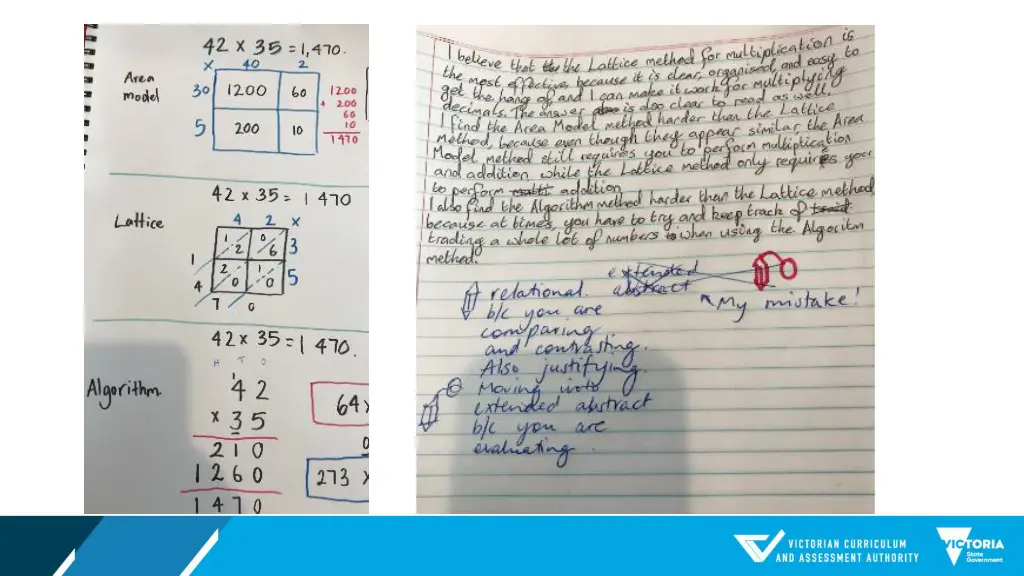 42 × 35 = 1,470.
Area
model
× 40 2
30 1200 60
5 200 10
1200
+ 200
60
10
1470
42 × 35 = 1 470
Lattice
4 2 ×
1 2 0 6 3
2 0 1 0 5
1
4
7 0
42 × 35 = 1 470.
Algorithm
H T O
1
42
× 35
210
1260
1470
64×
273 ×
I believe that the the Lattice method for multiplication is
the most effective, because it is clear, organised and easy to
get the hang of, and I can make it work for multiplying
decimals. The answer is also clear to read as well.
I find the Area Model method harder than the Lattice
Method, because even though they appear similar the Area
Model method still requires you to perform multiplication
and addition while the Lattice method only requires you
to perform multi addition.
I also find the Algorithm method harder than the Lattice method,
because at times, you have to try and keep track of
trading a whole lot of numbers when using the Algoritm
method.
extended
abstract
relational.
b/c you are
comparing
and contrasting.
Also justifying.
Moving into
extended abstract
b/c you are
evaluating.
My mistake!
VICTORIAN CURRICULUM
AND ASSESSMENT AUTHORITY
VICTORIA
State
Government